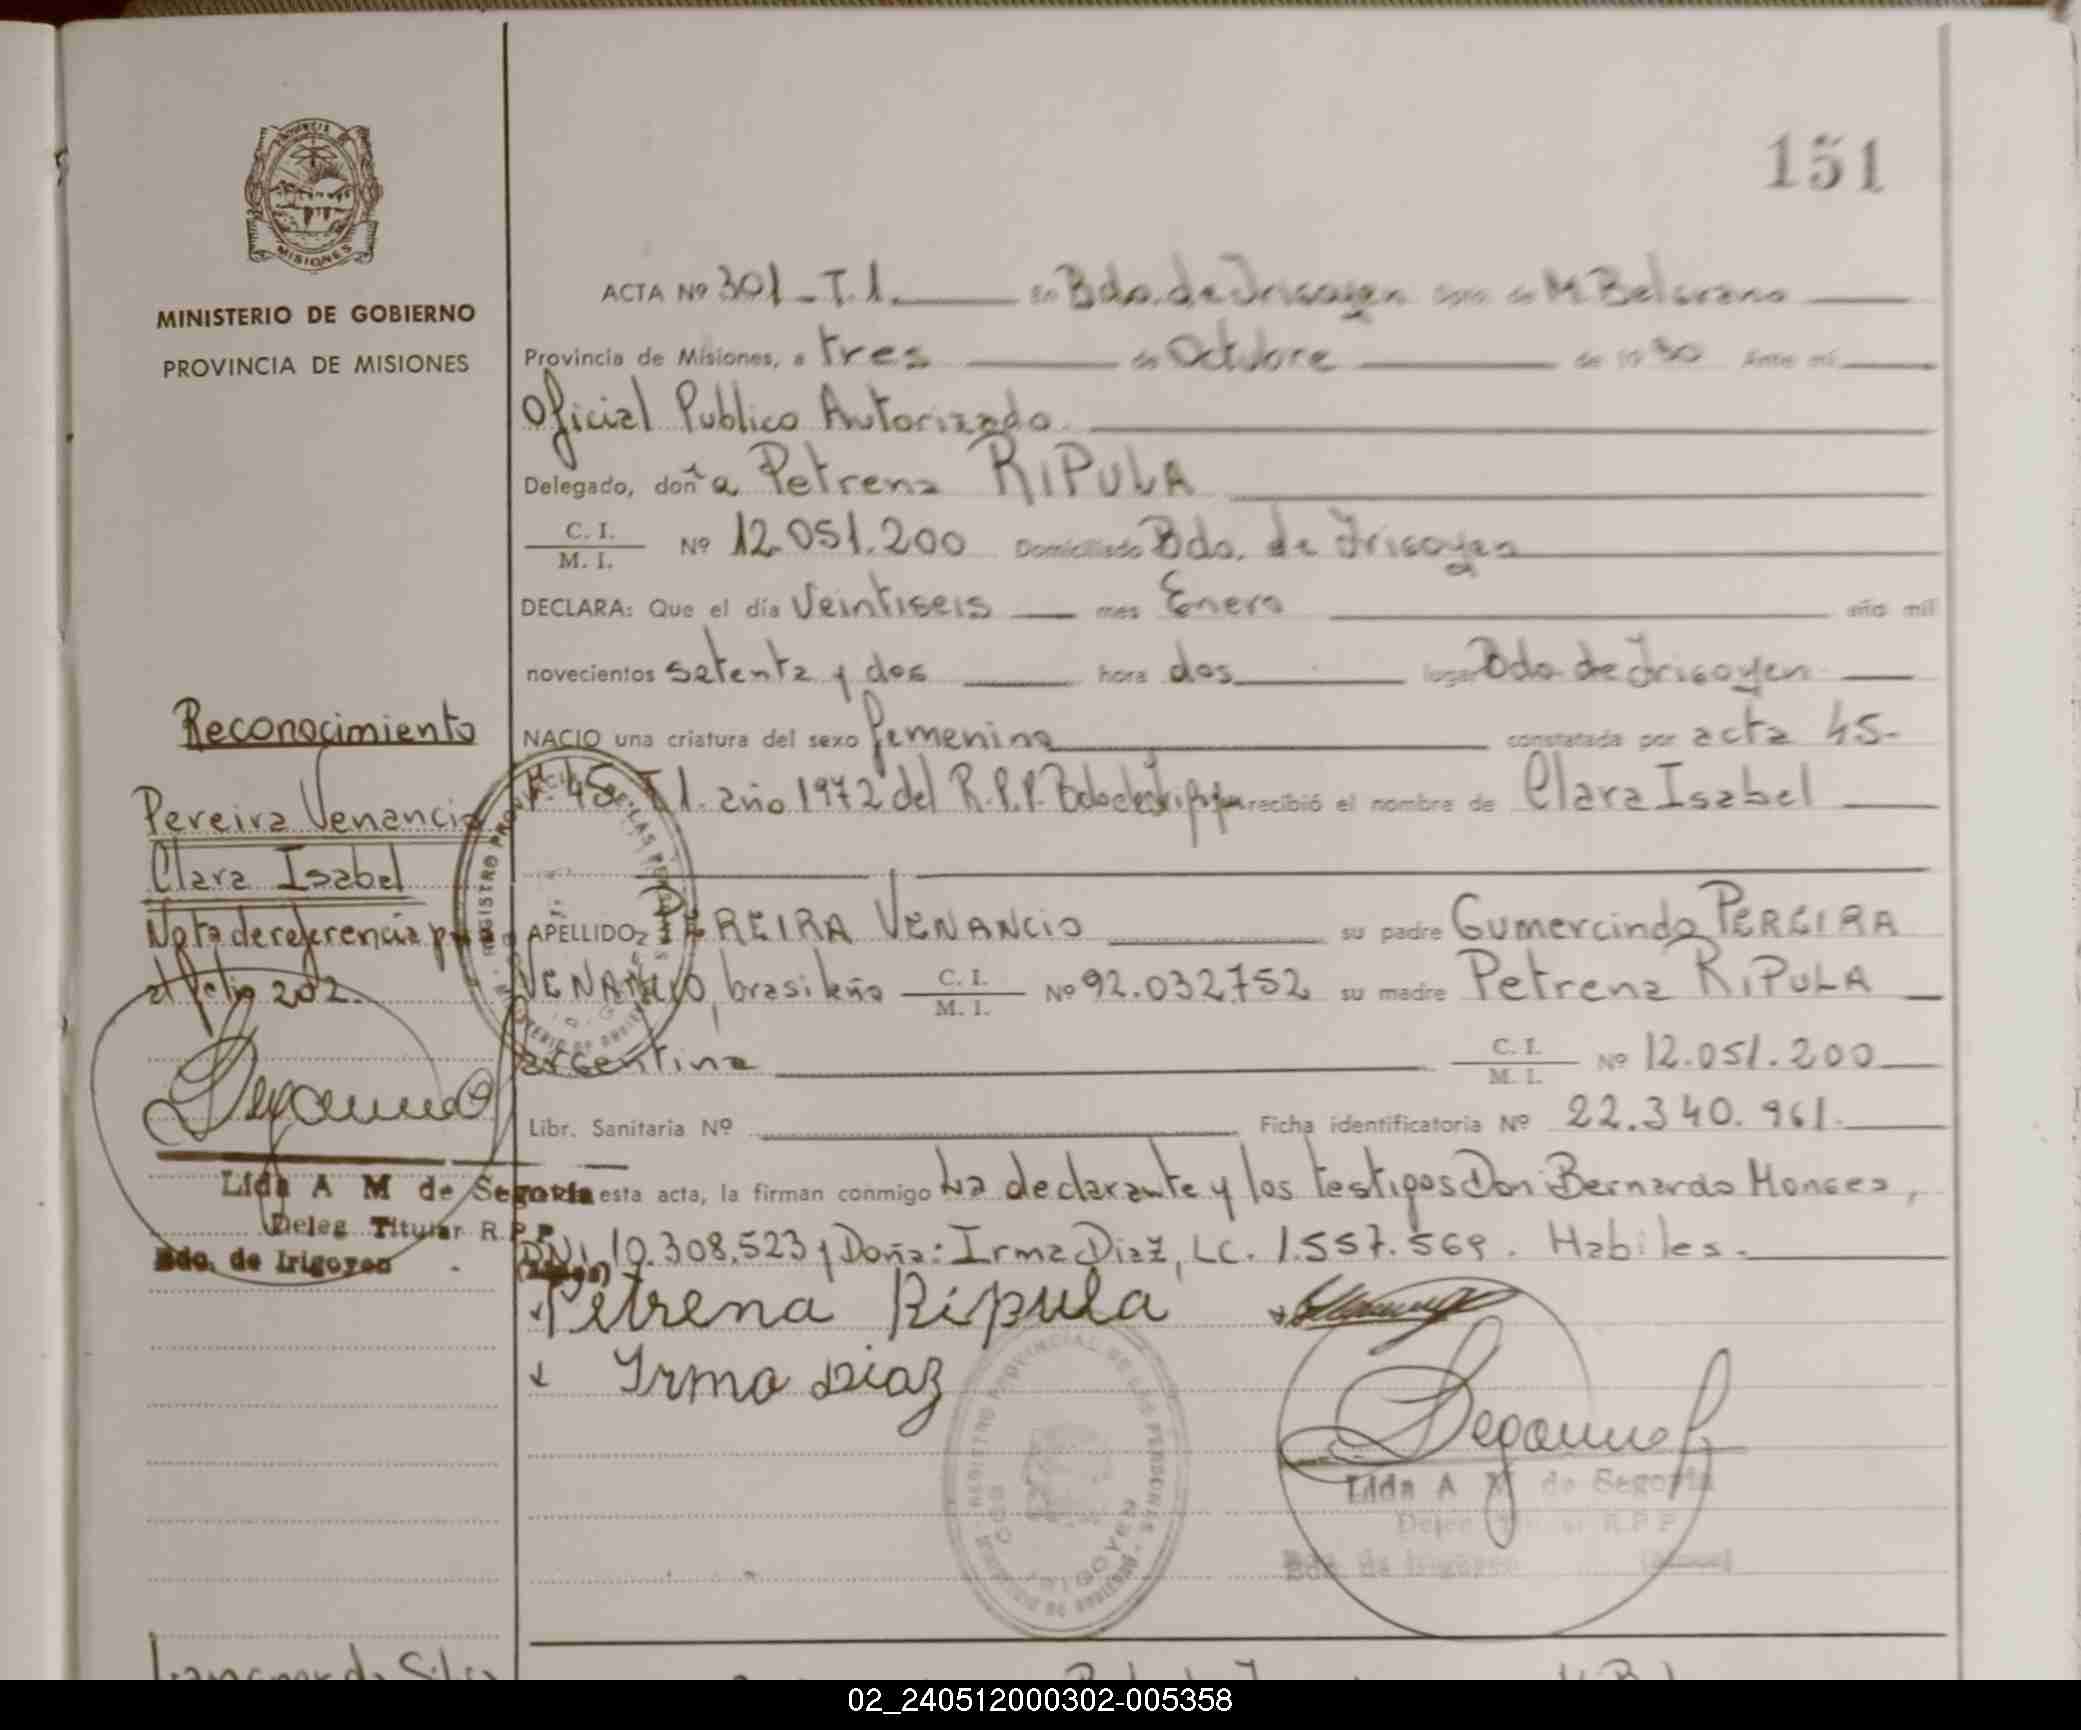 151
MINISTERIO DE GOBIERNO
PROVINCIA DE MISIONES
ACTA Nº 301 - T. 1. en Bdo. de Irigoyen Dpto de M Belgrano
Provincia de Misiones, a tres de Octubre de 19 80 Ante mi
Oficial Publico Autorizado
Delegado, doña Petrena RIPULA
C. I.
M. I.
Nº 12.051.200 Domiciliado Bdo. de Irigoyen
DECLARA: Que el día Veintiseis mes Enero año mil
novecientos setenta y dos hora dos lugar Bdo de Irigoyen
NACIO una criatura del sexo femenino constatada por acta 45-
Fº 45 T 1. año 1972 del R.P.P. Bdo de Irigoyen recibió el nombre de Clara Isabel
APELLIDO PEREIRA VENANCIO su padre Gumercindo PEREIRA
VENANCIO, brasileño C. I. M. I. Nº 92.032752 su madre Petrena RIPULA
argentina C. I. M. I. Nº 12.051.200
Libr. Sanitaria Nº Ficha identificatoria Nº 22.340.961.
esta acta, la firman conmigo La declarante y los testigos Don Bernardo
DNI 10.308.523 y Doña: Irma Diaz, LC. 1.557.569. Habiles.
Petrena Ripula
Irma Diaz
Lida A M de Segovia
Deleg Titular R.P.P
Bdo. de Irigoyen
Reconocimiento
Pereira Venancio
Clara Isabel
Nota de referencia
al folio 202.
Lida A M de Segovia
Deleg Titular R.P.P
Bdo. de Irigoyen
REGISTRO PROVINCIAL DE LAS PERSONAS
MINISTERIO DE GOBIERNO
IRIGOYEN
MISIONES
02_240512000302-005358